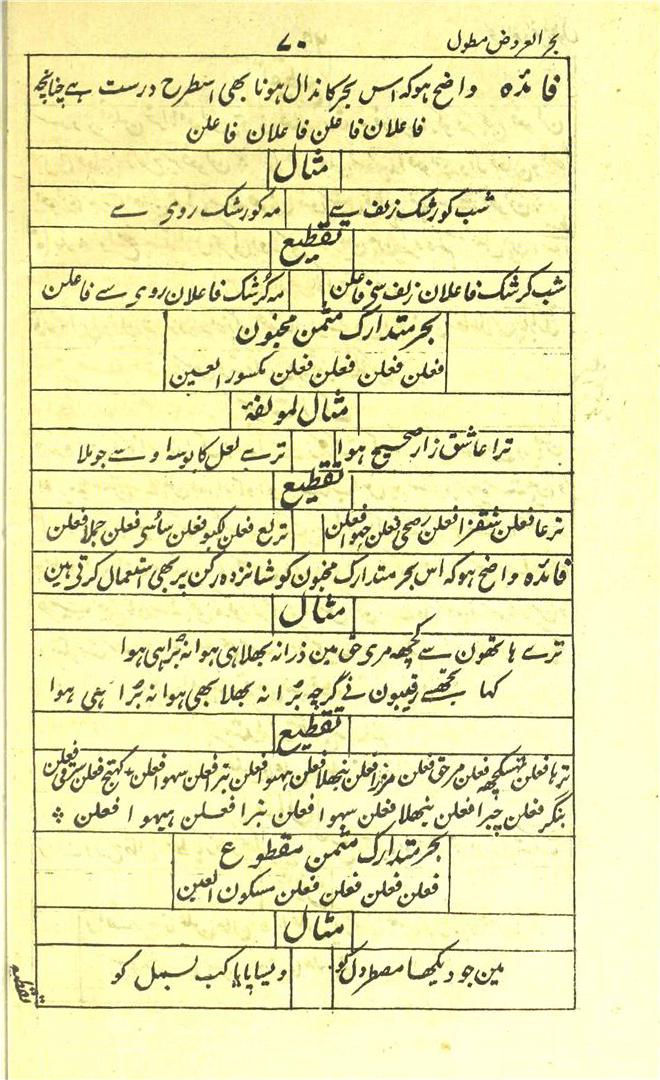 بحر العروض مطول ۷۰
فائدہ واضح ہو کہ اس بحر کا ندال ہونا بھی اسطرح درست ہے چنانچہ
فاعلان فاعلن فاعلان فاعلن
مثال
شب کو رشک زلف سے مہ کو رشک روی سے
تقطیع
شب کرشک فاعلان زلف سی فاعلن مہ کرشک فاعلان روی سے فاعلن
بحر متدارک مثمن مخبون
فعلن فعلن فعلن فعلن مکسور العین
مثال لمولفہ
ترا عاشق زار صحیح ہوا ترے لعل کا بوسا و سے جو ملا
تقطیع
ترعا فعلن شقزا فعلن رصحی فعلن حہوا فعلن ترلع فعلن لکبو فعلن سأسی فعلن جملا فعلن
فائدہ واضح ہو کہ اس بحر متدارک مخبون کو شانزدہ رکن پر بھی استعمال کرتی ہین
مثال
ترے ہاتھون سے کچھہ مری حق مین ذرا نہ بھلا ہی ہوا نہ بُرا ہی ہوا
کہا تجھسے رقیبون نے گرچہ بُرا نہ بھلا بھی ہوا نہ بُرا ہی ہوا
تقطیع
ترہا فعلن فعلن مرحق فعلن فعلن نبھلا فعلن فعلن نبرا فعلن فعلن فعلن
فعلن چبرا فعلن نبھلا فعلن سہوا فعلن نبرا فعلن ہیہوا فعلن
بحر متدارک مثمن مقطوع
فعلن فعلن فعلن فعلن مسکون العین
مثال
مین جو دیکھا مضطر دل کو ویسا پایا کب بسمل کو
تقطیع